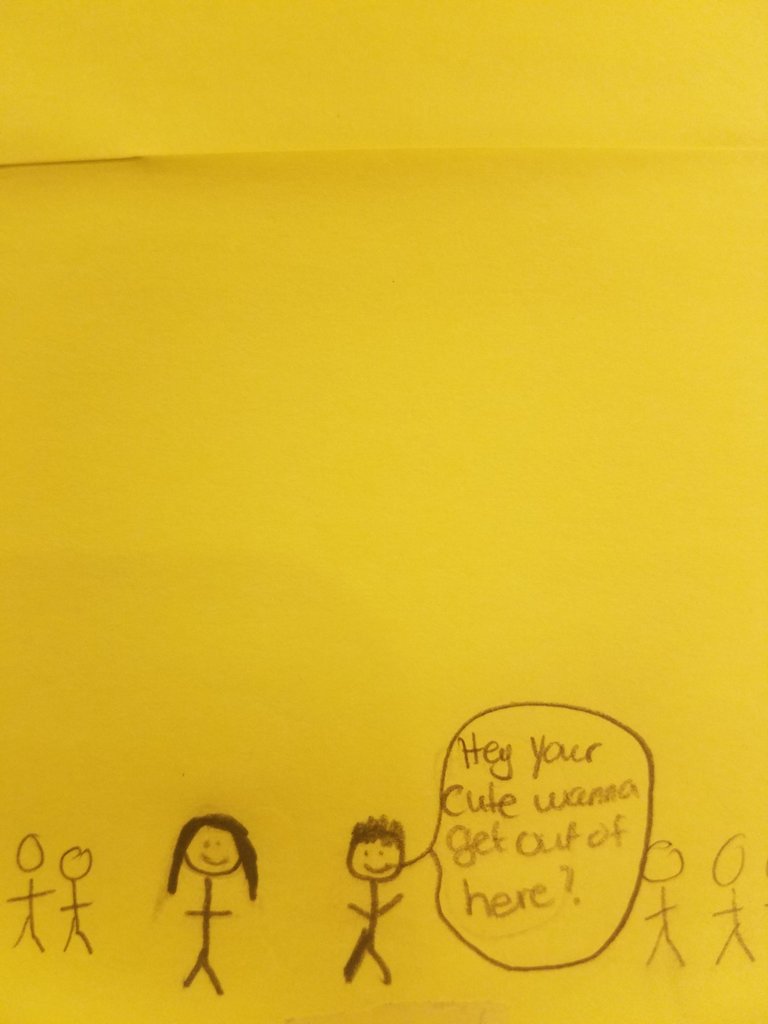 Hey your
cute wanna
get out of
here?